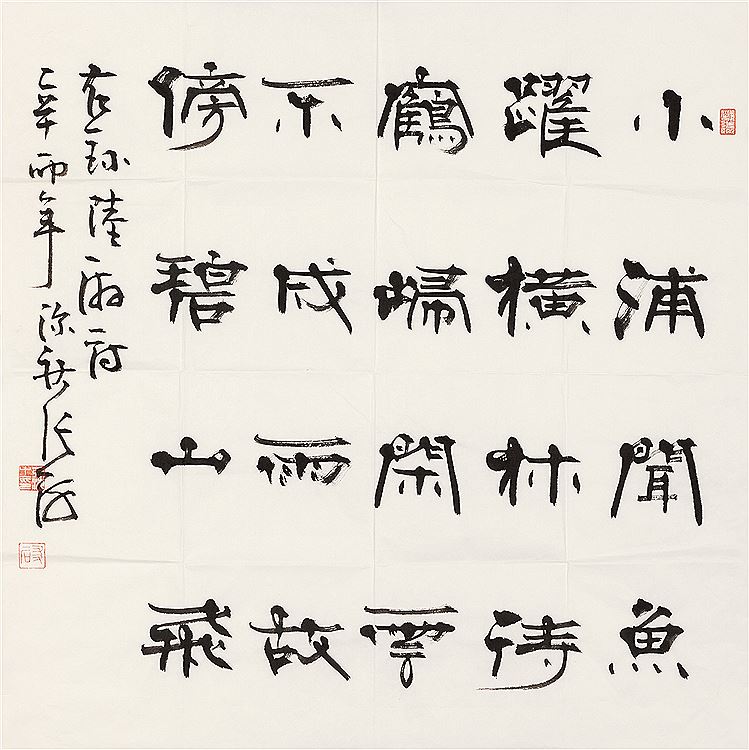 小浦聞魚
躍橫林待
鶴歸閑雲
不成雨故
傍碧山飛
右錄陸游詩
辛酉年深秋張海